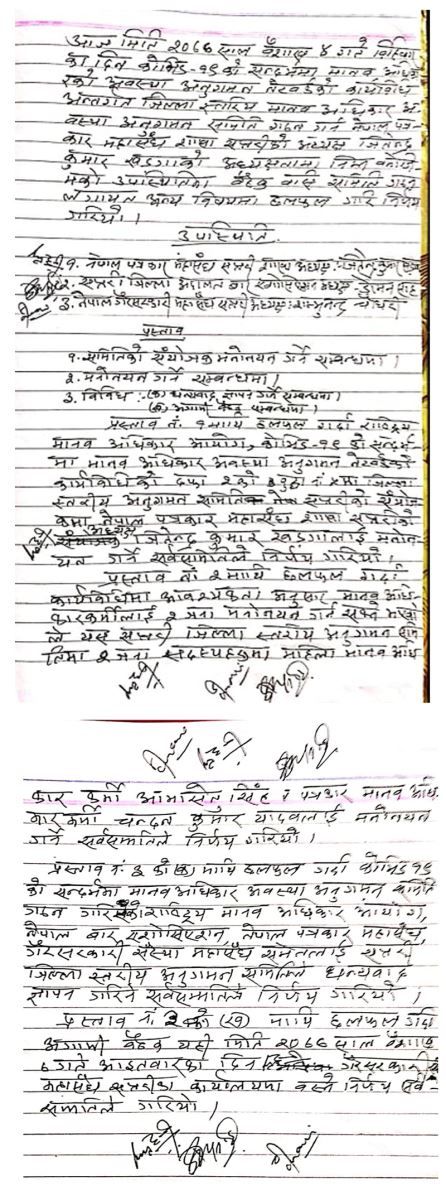 आज मिति २०७७ साल वैशाख ४ गते बिहिबार
का दिन कोभिड-१९ को सन्दर्भमा मानव अधि-
कारको अवस्था अनुगमन नेटवर्कको कार्यविधि
अन्तर्गत जिल्ला स्तरीय मानव अधिकार अ-
वस्था अनुगमन समिति गठन गर्न नेपाल पत्र-
कार महासंघ शाखा सप्तरीको अध्यक्ष जितेन्द्र
कुमार खड्गाको अध्यक्षतामा निम्न बमोजि-
मको उपस्थितिका बैठक बसि समिति गठन
लगायत अन्य विषयमा छलफल गरि निर्णय
गरियो ।
उपस्थिति
१. नेपाल पत्रकार महासंघ सप्तरी शाखा अध्यक्ष : जितेन्द्र कुमार खड्गा
२. सप्तरी जिल्ला अदालत बार एशोसिएसन अध्यक्ष :
३. नेपाल गैरसरकारी महासंघ सप्तरी अध्यक्ष : चौधरी
प्रस्ताव
१. समितिको संयोजक मनोनयन गर्ने सम्बन्धमा ।
२. मनोनयन गर्ने सम्बन्धमा ।
३. विविध : (क) धन्यवाद ज्ञापन गर्ने सम्बन्धमा ।
(ख) आगामी बैठक सम्बन्धमा ।
प्रस्ताव नं. १ माथि छलफल गर्दा राष्ट्रिय
मानव अधिकार आयोग, कोभिड-१९ को सन्दर्भ-
मा मानव अधिकार अवस्था अनुगमन नेटवर्कको
कार्यविधिको दफा २ को नं मा जिल्ला
स्तरीय अनुगमन समिति सप्तरीको संयोज-
कमा नेपाल पत्रकार महासंघ शाखा सप्तरीको
अध्यक्ष
जितेन्द्र कुमार खड्गालाई मनोन-
यन गर्ने सर्वसम्मतिले निर्णय गरियो ।
प्रस्ताव नं २ माथि छलफल गर्दा
कार्यविधिमा आवश्यकता अनुसार मानव अधि-
कारकर्मीलाई २ जना मनोनयन गर्न सक्ने भएको
ले यस सप्तरी जिल्ला स्तरीय अनुगमन समि-
तिमा २ जना सदस्यहरुमा महिला मानव अधि
कार कर्मी सिंह र पत्रकार मानव अधि-
कार कर्मी चन्दन कुमार यादवलाई मनोनयन
गर्ने सर्वसम्मतिले निर्णय गरियो ।
प्रस्ताव नं. ३ को क माथि छलफल गर्दा कोभिड १९
को सन्दर्भमा मानव अधिकार अवस्था अनुगमन
गठन राष्ट्रिय मानव अधिकार आयोग,
नेपाल बार एशोसिएशन, नेपाल पत्रकार महासंघ,
गैरसरकारी संस्था महासंघ समेतलाई सप्तरी
जिल्ला स्तरीय अनुगमन समितिले धन्यवाद
ज्ञापन गरिने सर्वसम्मतिले निर्णय गरियो ।
प्रस्ताव नं. ३ को (ख) माथि छलफल गर्दा
आगामी बैठक यही मिति २०७७ साल वैशाख
७ गते आइतवारका दिन गैरसरकारी
महासंघ सप्तरीको कार्यालयमा बस्ने निर्णय सर्व-
सम्मतिले गरियो ।